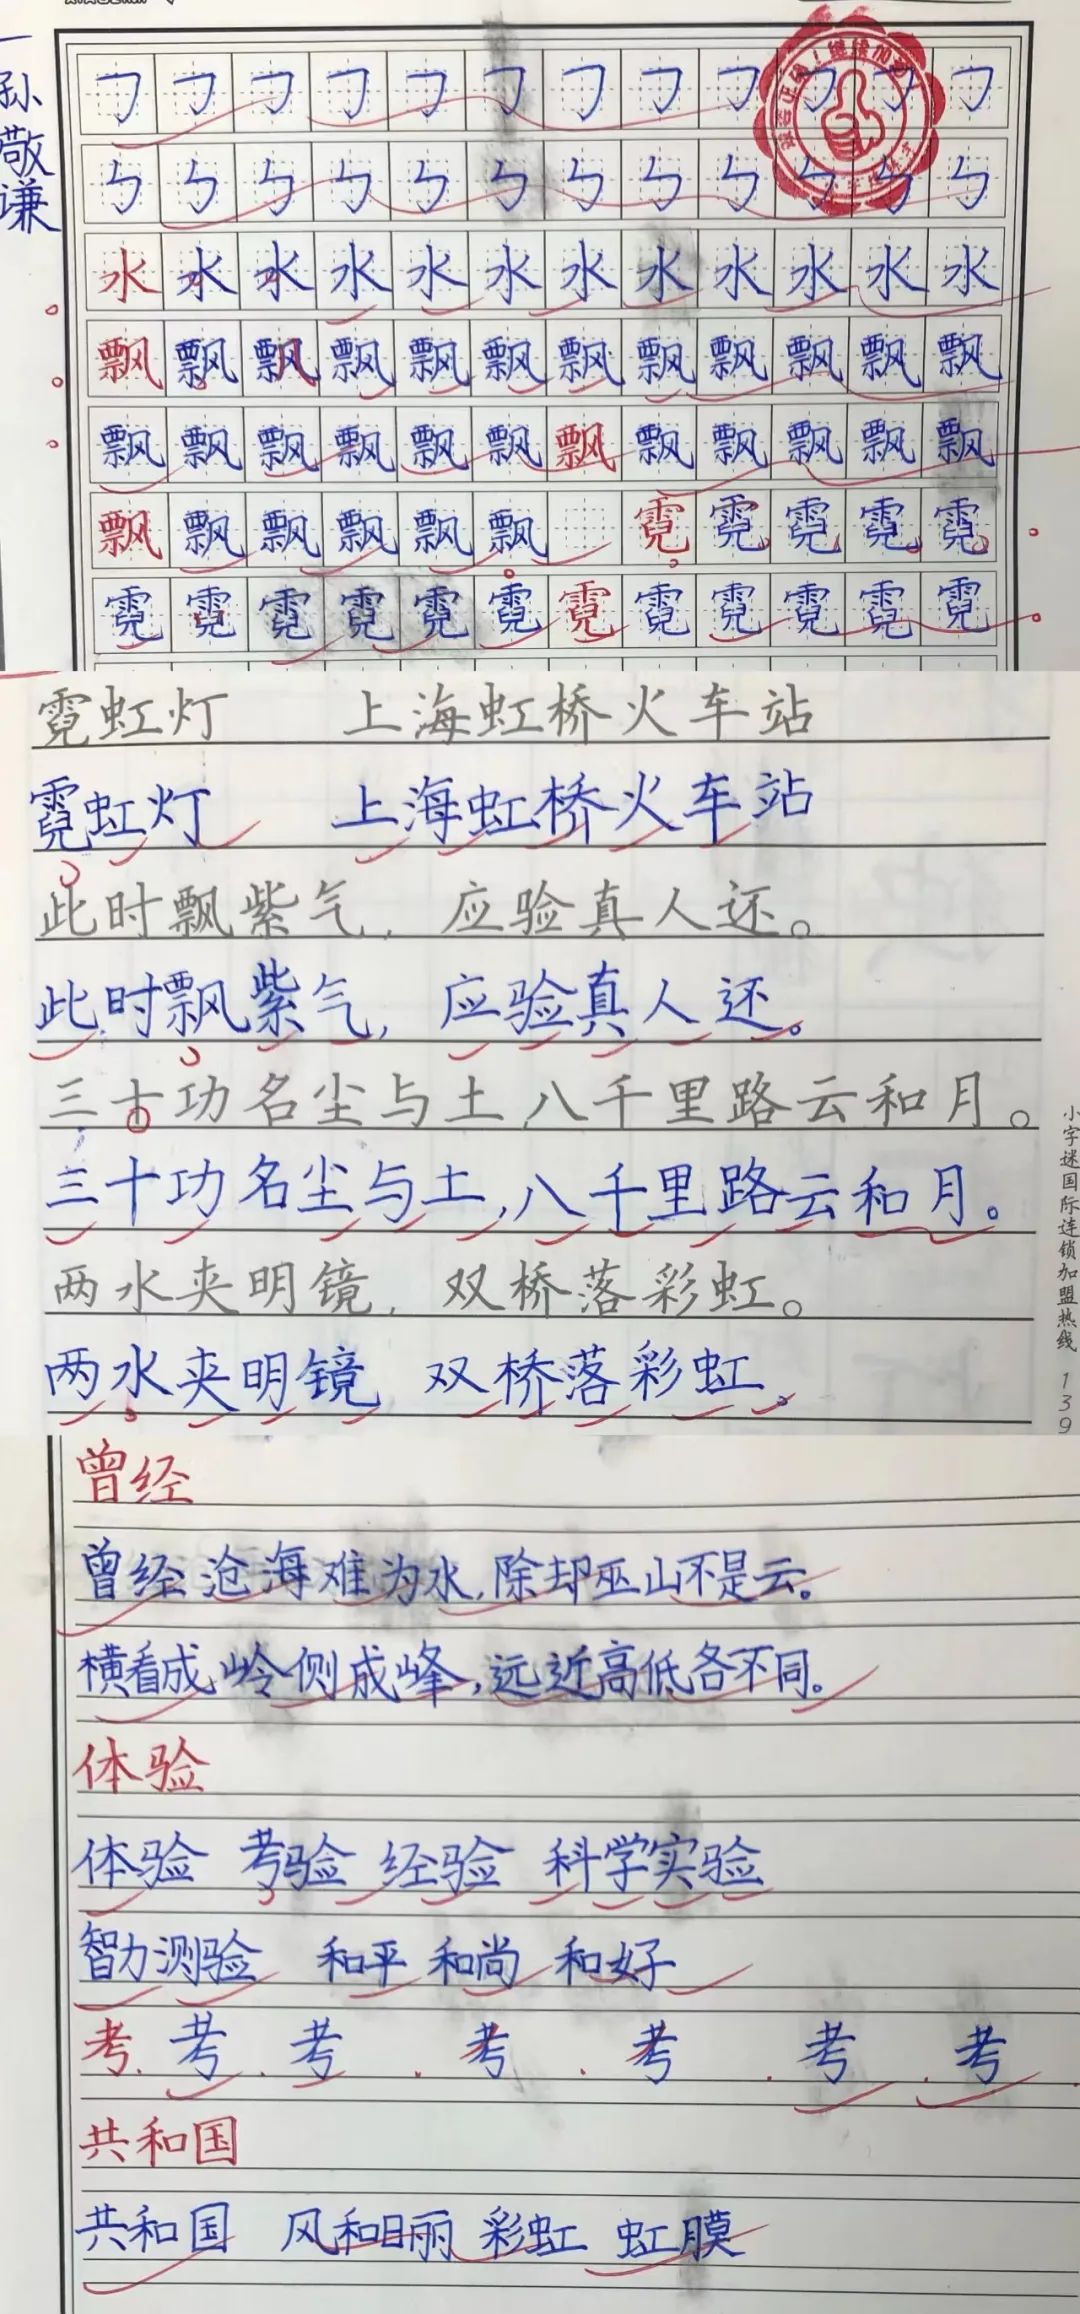 孙敬谦
㇆ ㇆ ㇆ ㇆ ㇆ ㇆ ㇆ ㇆ ㇆ ㇆ ㇆ ㇆
㇉ ㇉ ㇉ ㇉ ㇉ ㇉ ㇉ ㇉ ㇉ ㇉ ㇉ ㇉
水 水 水 水 水 水 水 水 水 水 水 水
飘 飘 飘 飘 飘 飘 飘 飘 飘 飘 飘 飘
飘 飘 飘 飘 飘 飘 飘 飘 飘 飘 飘 飘
飘 飘 飘 飘 飘 飘 霓 霓 霓 霓 霓
霓 霓 霓 霓 霓 霓 霓 霓 霓 霓 霓 霓
霓虹灯 上海虹桥火车站
霓虹灯 上海虹桥火车站
此时飘紫气，应验真人还。
此时飘紫气，应验真人还。
三十功名尘与土八千里路云和月。
三十功名尘与土，八千里路云和月。
两水夹明镜，双桥落彩虹。
两水夹明镜 双桥落彩虹。
小字迷国际连锁加盟热线 139
曾经
曾经沧海难为水，除却巫山不是云。
横看成岭侧成峰，远近高低各不同。
体验
体验 考验 经验 科学实验
智力测验 和平 和尚 和好
考 考 考 考 考 考 考
共和国
共和国 风和日丽 彩虹 虹膜